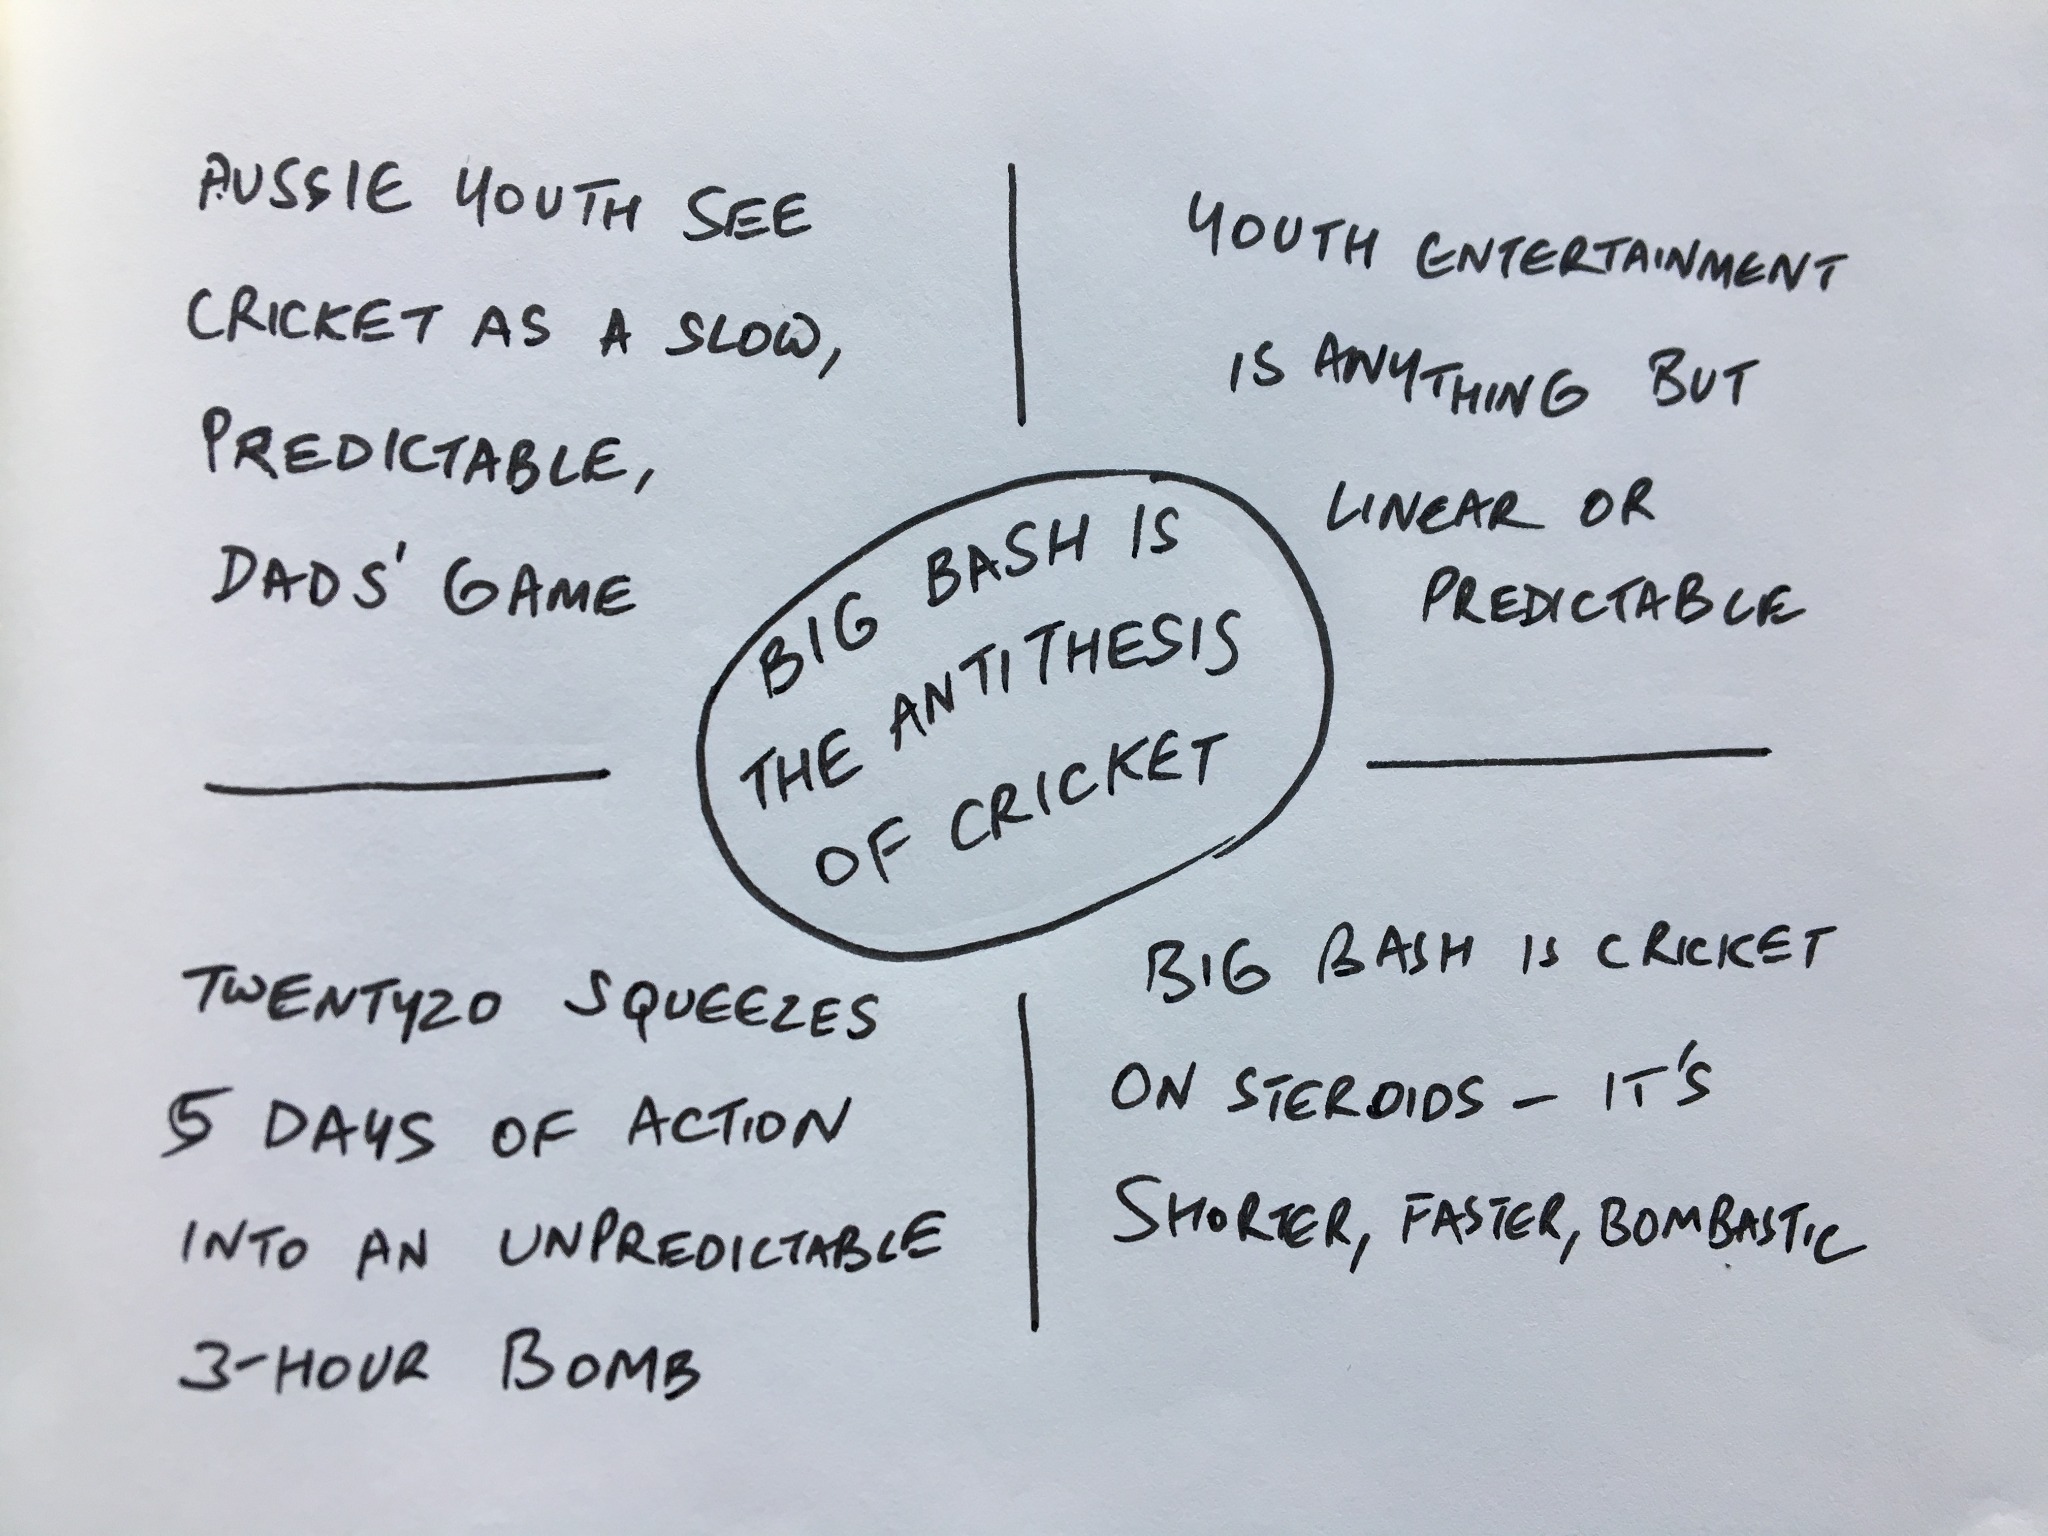 AUSSIE YOUTH SEE
CRICKET AS A SLOW,
PREDICTABLE,
DADS' GAME
YOUTH ENTERTAINMENT
IS ANYTHING BUT
LINEAR OR
PREDICTABLE
BIG BASH IS
THE ANTITHESIS
OF CRICKET
TWENTY20 SQUEEZES
5 DAYS OF ACTION
INTO AN UNPREDICTABLE
3-HOUR BOMB
BIG BASH IS CRICKET
ON STEROIDS - IT'S
SHORTER, FASTER, BOMBASTIC